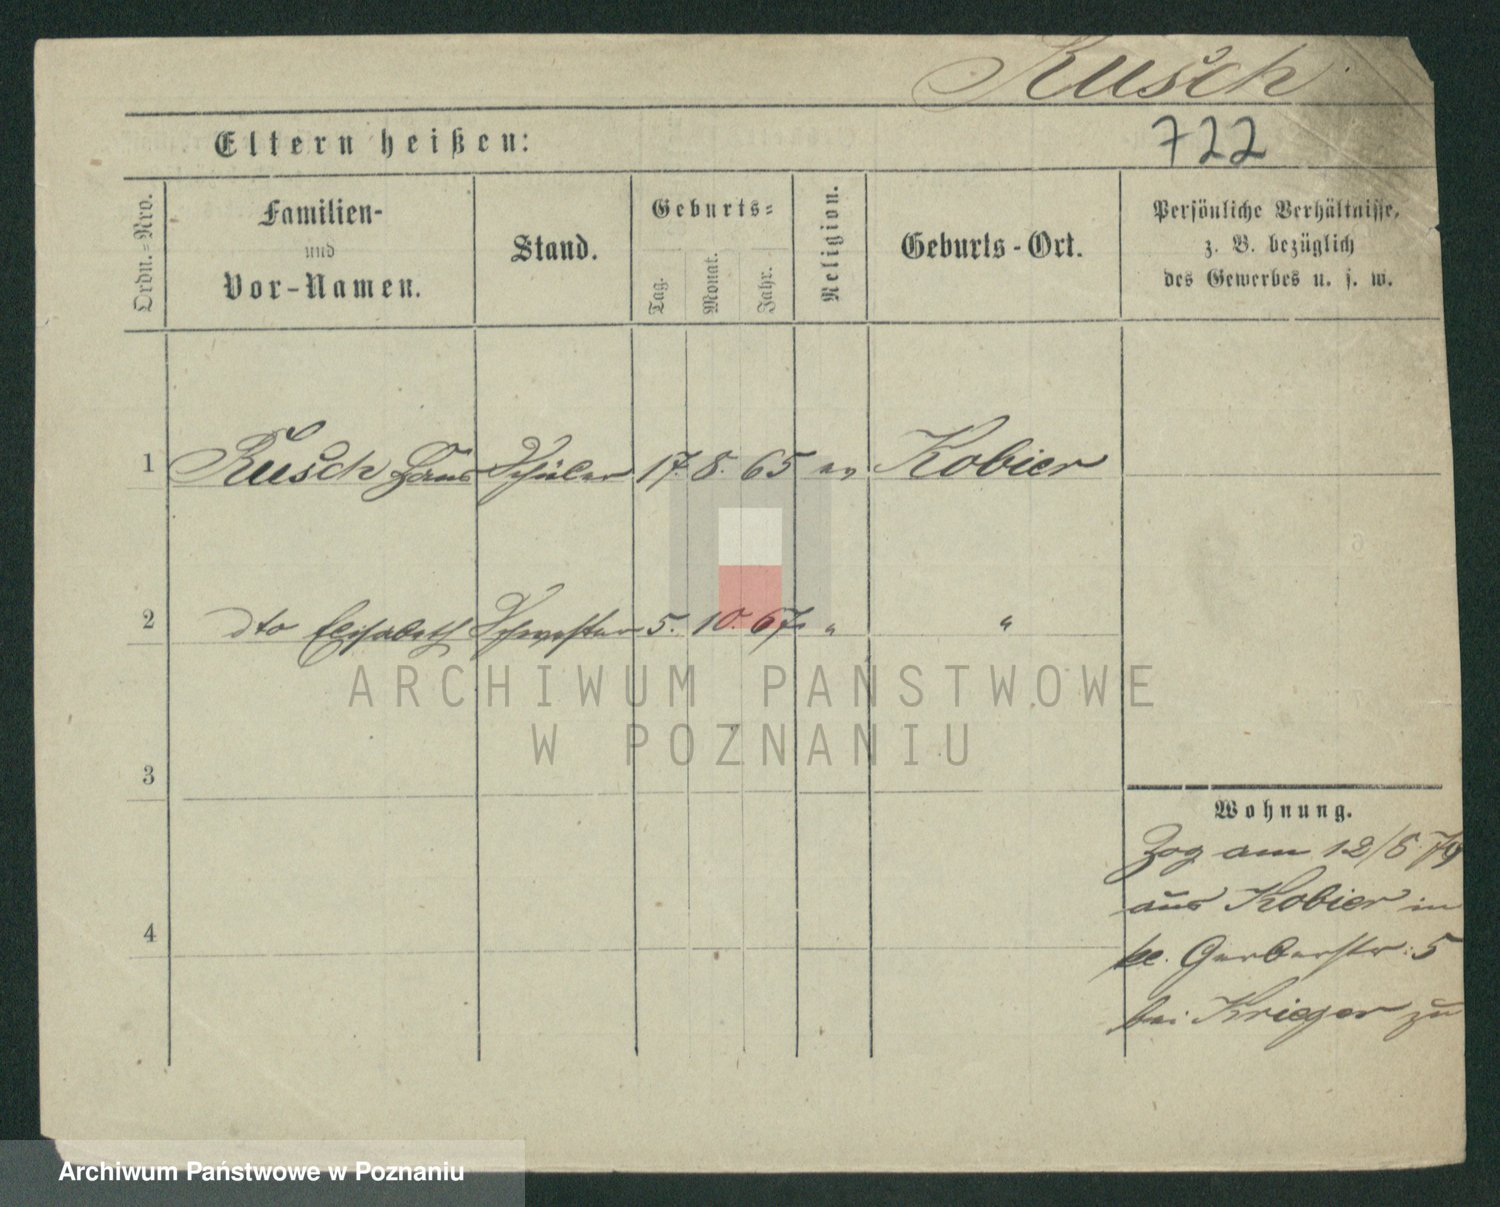 Rusch
722
Eltern heißen:
Ordn.-Nro.
Familien-
und
Vor-Namen.
Stand.
Geburts-
Tag.
Monat.
Jahr.
Religion.
Geburts-Ort.
Persönliche Verhältnisse,
z. B. bezüglich
des Gewerbes u. s. w.
1 Rusch Hans Schüler 17. 8. 65 ev Kobier
2 dto Elisabeth Schwester 5. 10. 67. " "
ARCHIWUM PAŃSTWOWE
W POZNANIU
3
4
Wohnung.
Zog am 12/8 79
aus Kobier in
kl. Gerberstr: 5
bei Krieger zu
Archiwum Państwowe w Poznaniu